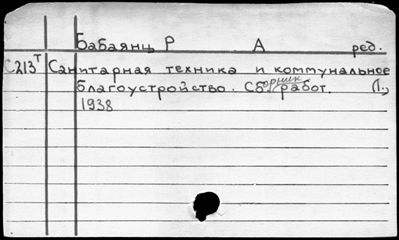 Бабаянц Р А ред.
С213т Санитарная техника и коммунальное
благоустройство. Сборник работ. (1.,
1938